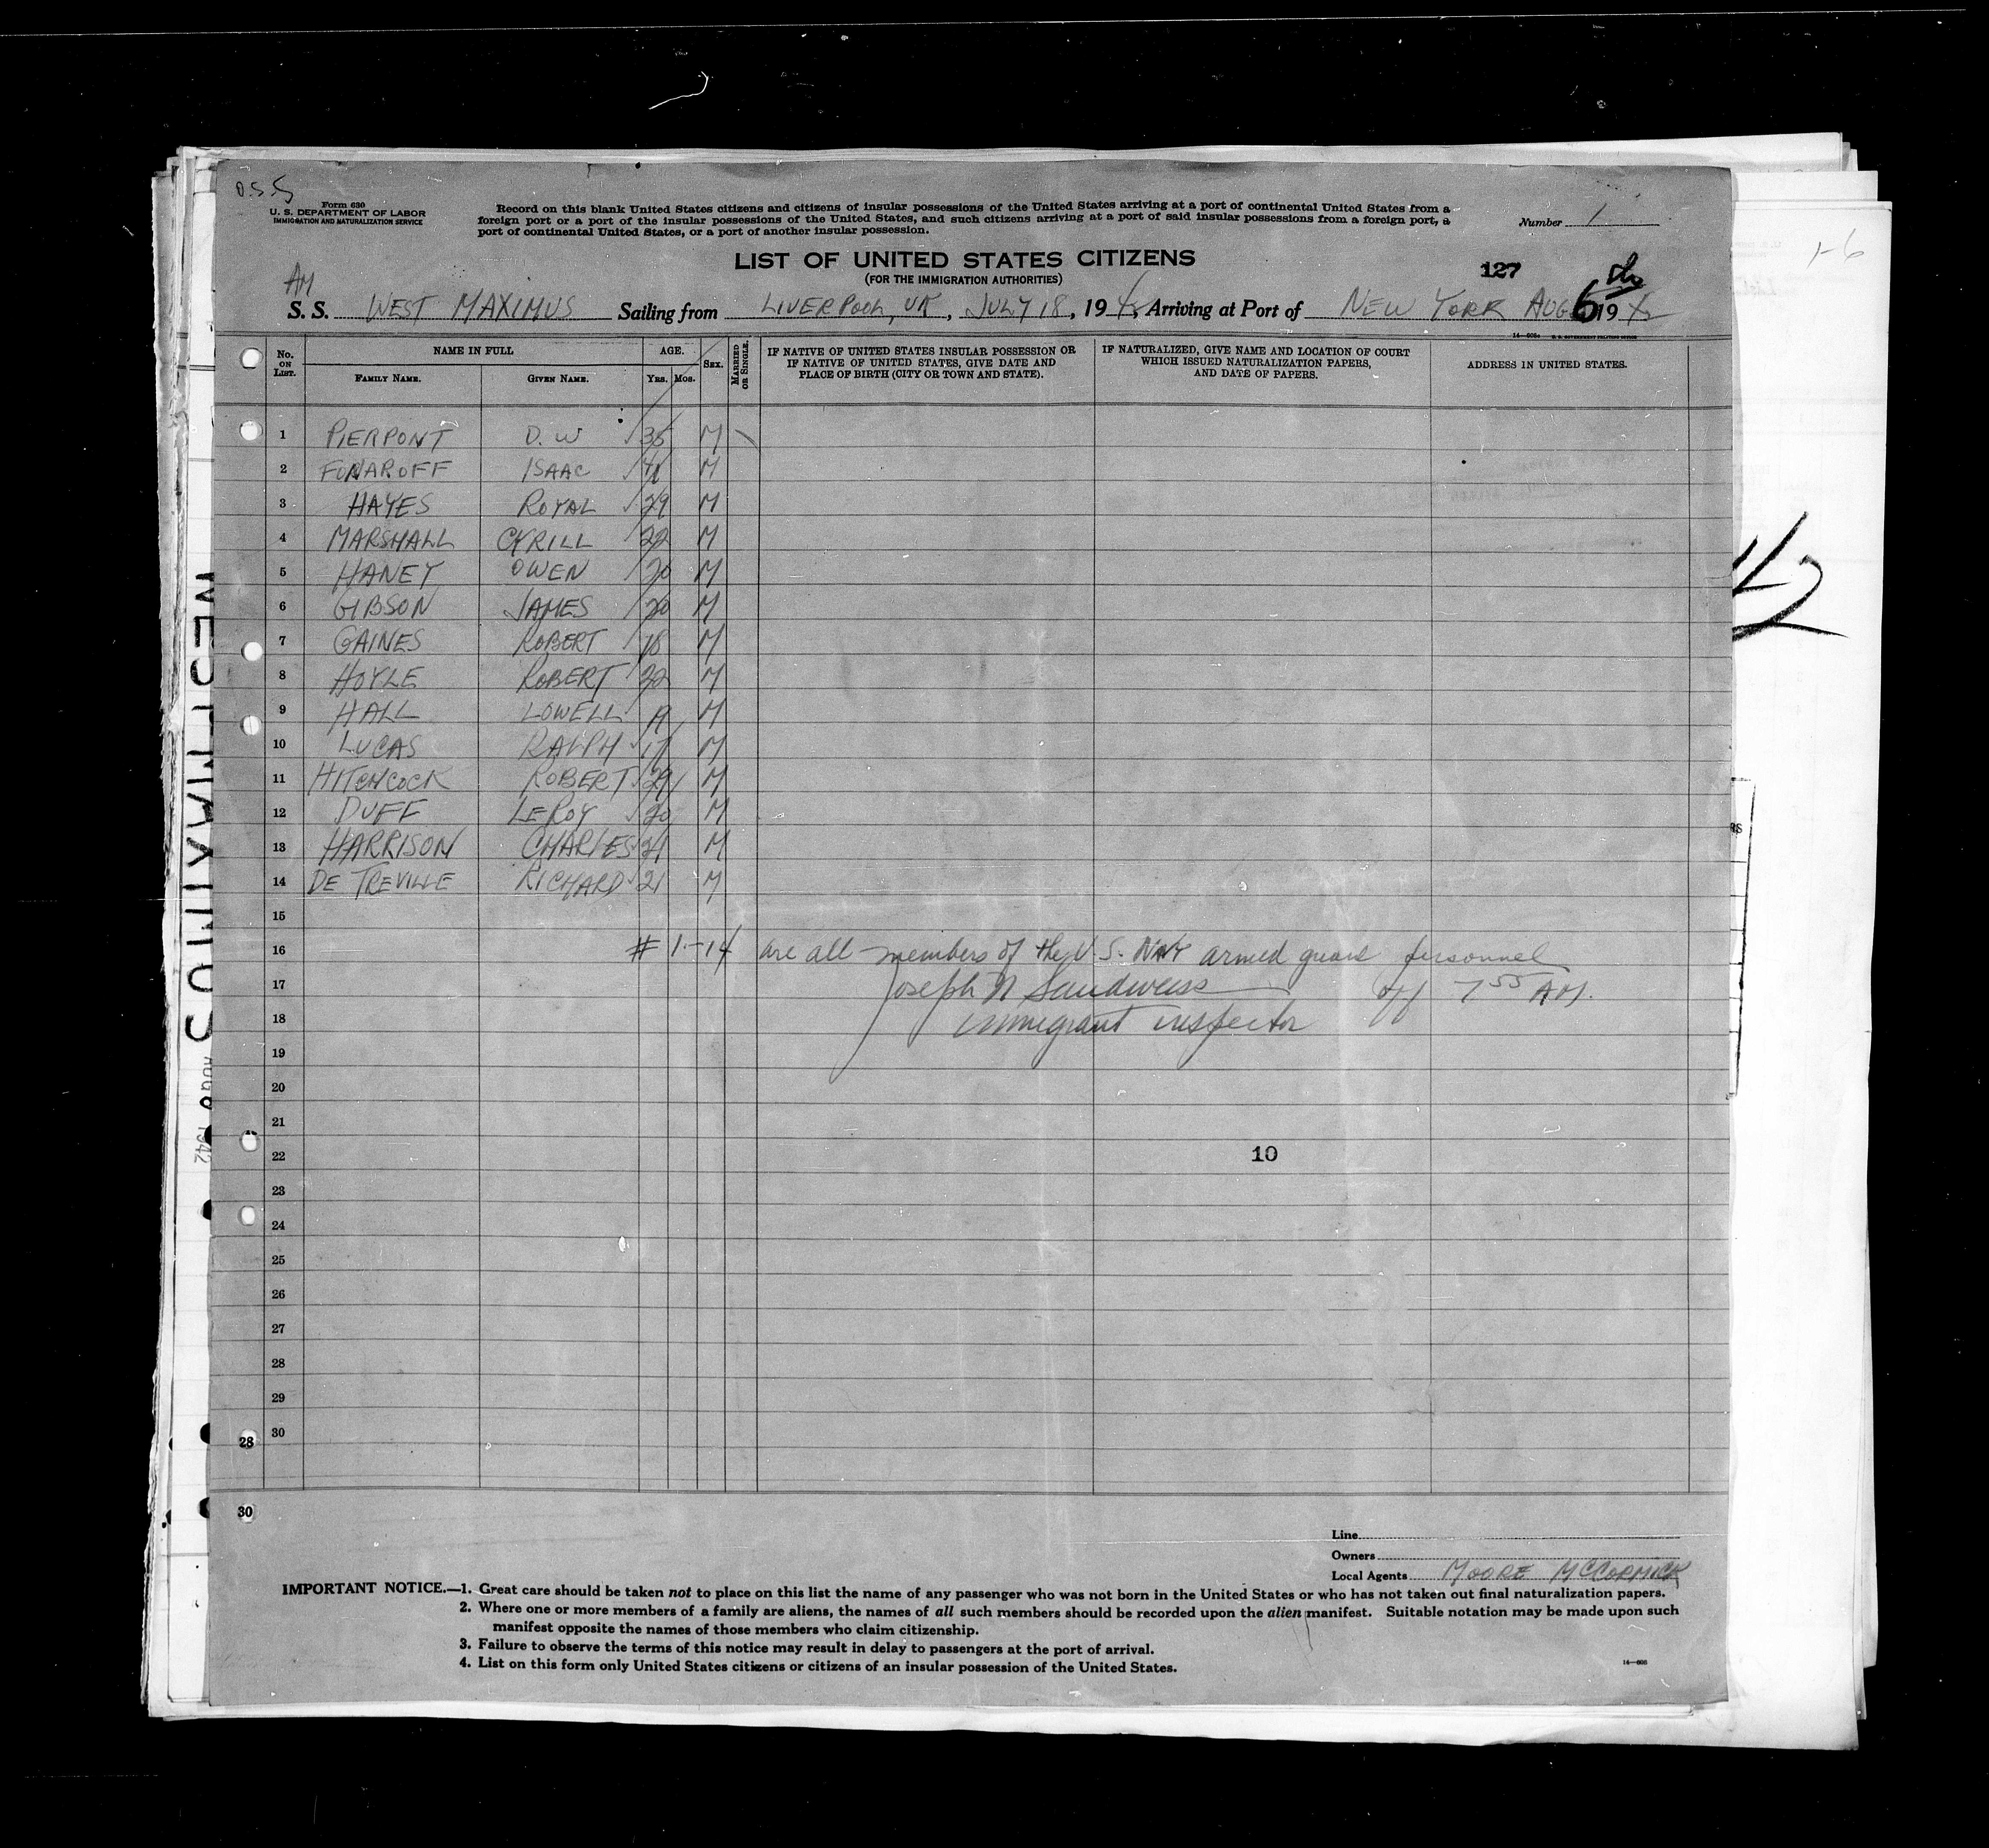 D.S.S
Form 630
U. S. DEPARTMENT OF LABOR
IMMIGRATION AND NATURALIZATION SERVICE
Record on this blank United States citizens and citizens of insular possessions of the United States arriving at a port of continental United States from a
foreign port or a port of the insular possessions of the United States, and such citizens arriving at a port of said insular possessions from a foreign port, a
port of continental United States, or a port of another insular possession.
Number 1
1-6
LIST OF UNITED STATES CITIZENS
(FOR THE IMMIGRATION AUTHORITIES)
127
AM
S. S. WEST MAXIMUS Sailing from LIVERPOOL, UK, JULY 18, 1942, Arriving at Port of NEW YORK AUG 6th 1942
No. on List.
NAME IN FULL
Family Name. Given Name.
AGE.
Yrs. Mos.
Sex.
Married or Single.
IF NATIVE OF UNITED STATES INSULAR POSSESSION OR
IF NATIVE OF UNITED STATES, GIVE DATE AND
PLACE OF BIRTH (CITY OR TOWN AND STATE).
IF NATURALIZED, GIVE NAME AND LOCATION OF COURT
WHICH ISSUED NATURALIZATION PAPERS,
AND DATE OF PAPERS.
ADDRESS IN UNITED STATES.
1 PIERPONT D. W M
2 FONAROFF ISAAC 41 M
3 HAYES ROYAL 29 M
4 MARSHALL CYRILL 22 M
5 HANEY OWEN 20 M
6 GIBSON JAMES 20 M
7 GAINES ROBERT 18 M
8 HOYLE ROBERT M
9 HALL LOWELL 19 M
10 LUCAS RALPH 17 M
11 HITCHCOCK ROBERT 29 M
12 DUFF LEROY 20 M
13 HARRISON CHARLES 21 M
14 DE TREVILLE RICHARD 21 M
15
16 # 1-14 are all members of the U. S. Navy armed guard personnel
17 Joseph N Sandweiss off 7 55 AM.
18 immigrant inspector
19
20
21
22 10
23
24
25
26
27
28
29
30
28
30
Line
Owners
Local Agents MOORE McCORMICK
IMPORTANT NOTICE.—1. Great care should be taken not to place on this list the name of any passenger who was not born in the United States or who has not taken out final naturalization papers.
2. Where one or more members of a family are aliens, the names of all such members should be recorded upon the alien manifest. Suitable notation may be made upon such
manifest opposite the names of those members who claim citizenship.
3. Failure to observe the terms of this notice may result in delay to passengers at the port of arrival.
4. List on this form only United States citizens or citizens of an insular possession of the United States.
14—608
WEST MAXIMUS AUG 6 1942